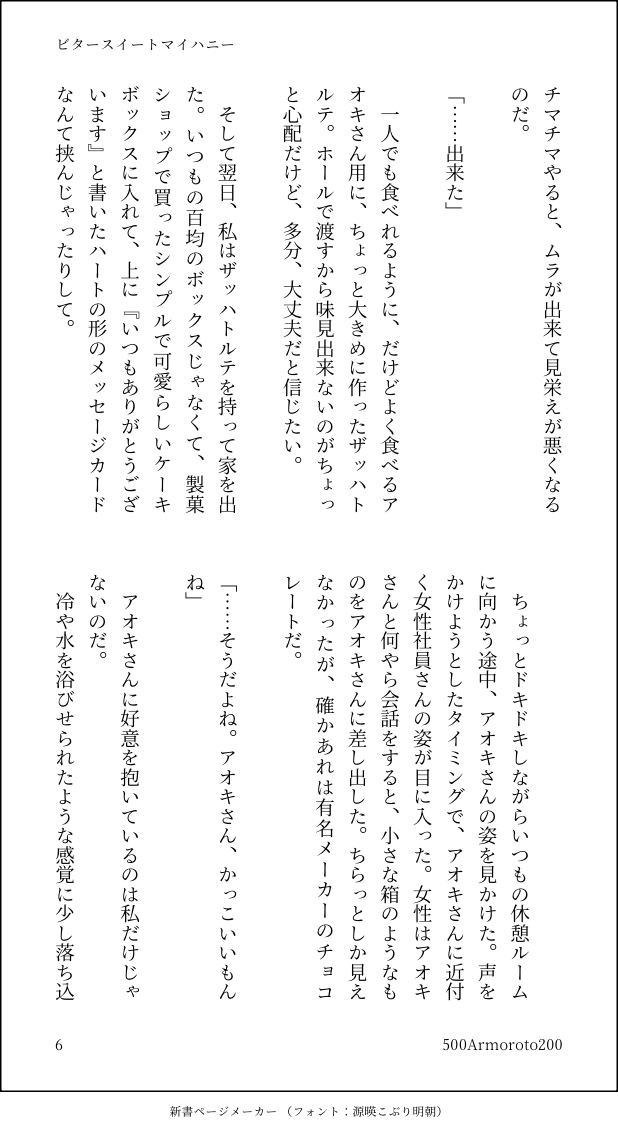 ビタースイートマイハニー
チマチマやると、ムラが出来て見栄えが悪くなる
のだ。
「……出来た」
一人でも食べれるように、だけどよく食べるア
オキさん用に、ちょっと大きめに作ったザッハト
ルテ。ホールで渡すから味見出来ないのがちょっ
と心配だけど、多分、大丈夫だと信じたい。
そして翌日、私はザッハトルテを持って家を出
た。いつもの百均のボックスじゃなくて、製菓
ショップで買ったシンプルで可愛らしいケーキ
ボックスに入れて、上に『いつもありがとうござ
います』と書いたハートの形のメッセージカード
なんて挟んじゃったりして。
ちょっとドキドキしながらいつもの休憩ルーム
に向かう途中、アオキさんの姿を見かけた。声を
かけようとしたタイミングで、アオキさんに近付
く女性社員さんの姿が目に入った。女性はアオキ
さんと何やら会話をすると、小さな箱のようなも
のをアオキさんに差し出した。ちらっとしか見え
なかったが、確かあれは有名メーカーのチョコ
レートだ。
「……そうだよね。アオキさん、かっこいいもん
ね」
アオキさんに好意を抱いているのは私だけじゃ
ないのだ。
冷や水を浴びせられたような感覚に少し落ち込
6
500Armoroto200
新書ページメーカー（フォント：源暎こぶり明朝）